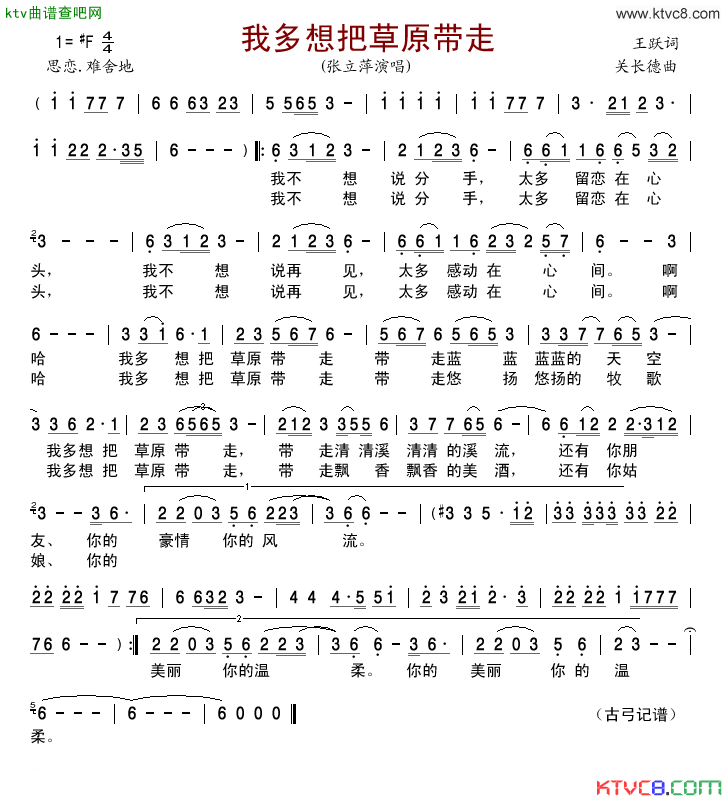 ktv曲谱查吧网 www.ktvc8.com
1= #F 4/4 我多想把草原带走 王跃词
思恋.难舍地 (张立萍演唱) 关长德曲
( i i 77 7 | 6 6 63 23 | 5 565 3 - | i i i i | i i 77 7 | 3 · 21 23 · |
i i 22 2·35 | 6 - - ) ‖: 6 312 3 - | 2 123 6 - | 6 61 16 65 32 |
我不 想 说分 手， 太多 留恋在 心
我不 想 说分 手， 太多 留恋在 心
2 3 - - - | 6 312 3 - | 2 123 6 - | 6 61 16 232 57 | 6 - - 3 |
头， 我不 想 说再 见， 太多 感动 在 心 间。 啊
头， 我不 想 说再 见， 太多 感动 在 心 间。 啊
6 - - - | 3 31 6·1 | 23 567 6 - | 3 567 6565 3 | 33 77 65 3 |
哈 我多 想把 草原 带 走 带 走蓝 蓝 蓝蓝的 天 空
哈 我多 想把 草原 带 走 带 走悠 扬 悠扬的 牧 歌
3 36 2·1 | 23 6565 3 - | 212 3556 | 37 765 6 - | 6 612 2·312 |
我多想 把 草原 带 走， 带 走清 清溪 清清 的溪 流， 还有 你朋
我多想 把 草原 带 走， 带 走飘 香 飘香 的美 酒， 还有 你姑
2 3 - - 36· | 2203 56 223 | 36 6 - - | (#3 3 5 · i2 | 33 333 33 3 |
友、 你的 豪情 你的 风 流。
娘、 你的
22 222 i 76 | 6 632 3 - | 4 4 4·5 5i | 2·3 22i 2 · 3 | 22 22i i777 |
76 6 - - ) :‖ 2203 56 223 | 36 6 - 36· | 2203 56 | 23 - - |
美丽 你的温 柔。 你的 美丽 你 的 温
5 6 - - - | 6 - - - | 6 0 0 0 ‖ （古弓记谱）
柔。
KTVC8.com